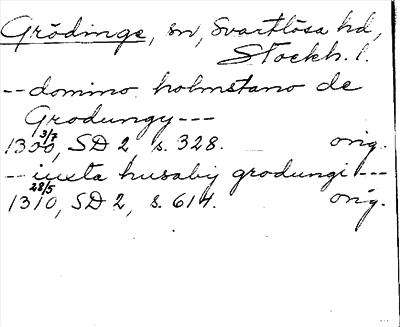 Grödinge, sn, Svartlösa hd,
Stockh. l.
-- domino holmstano de
Grodungy ---
1300 3/7, SD 2 s. 328. orig.
-- iuxta husabij grodungi ---
1310 28/5, SD 2, s. 614. orig.